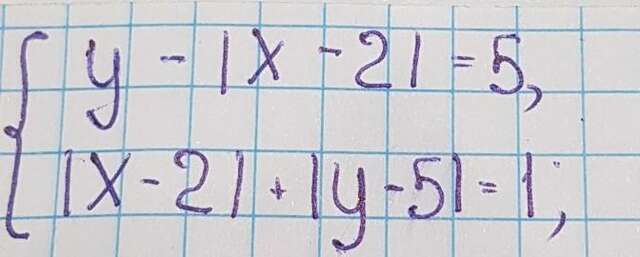 y - |x - 2| = 5,
|x - 2| + |y - 5| = 1;